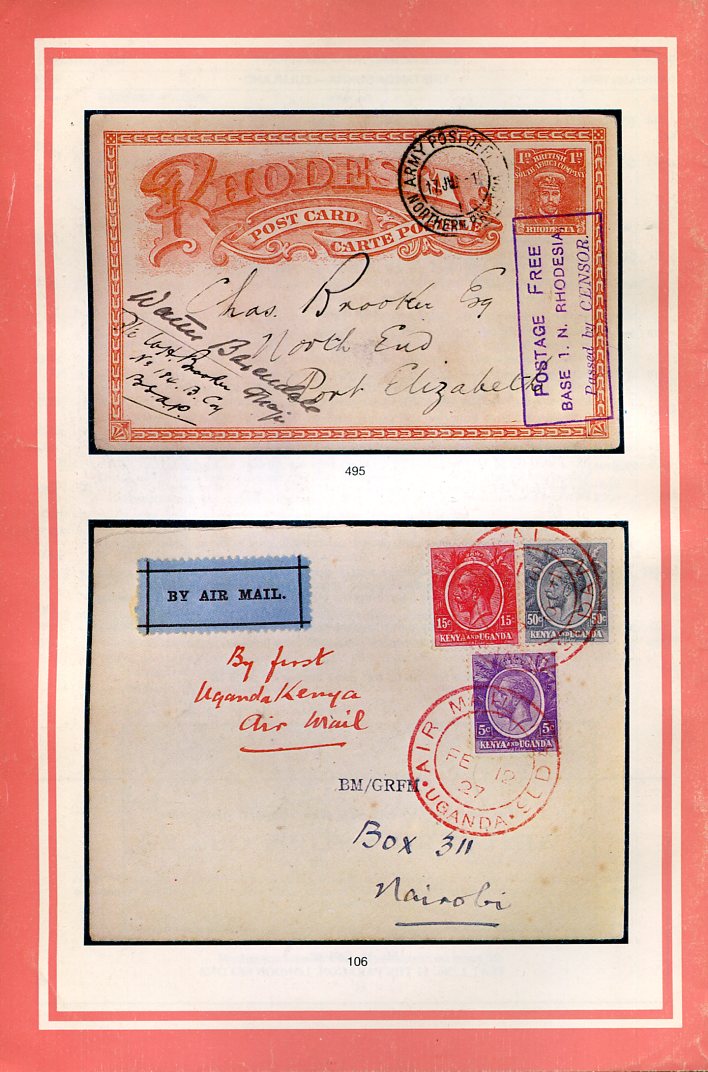 RHODESIA
POST CARD
CARTE PO
ARMY POST OFFI
17 JU -1
NORTHERN
1D BRITISH 1D
SOUTH AFRICA COMPANY
RHODESIA
POSTAGE FREE
BASE 1. N. RHODESIA
Passed by CENSOR.
Chas. Brooker Esq
North End
Port Elizabeth
Walter Baxendale
Maj
Brooker
B. Coy
BSAP
495
BY AIR MAIL.
By first
Uganda Kenya
Air Mail
15c 15c
KENYA AND UGANDA
50c 50c
KENYA AND UGANDA
5c 5c
KENYA AND UGANDA
AIR MAIL
FE 12
27
UGANDA
BM/GRFM
Box 311
Nairobi
106